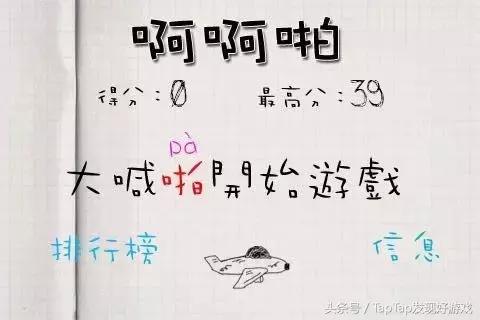 啊啊啪
得分:0 最高分:39
pà
大喊啪開始遊戲
排行榜 信息
头条号 / TapTap发现好游戏